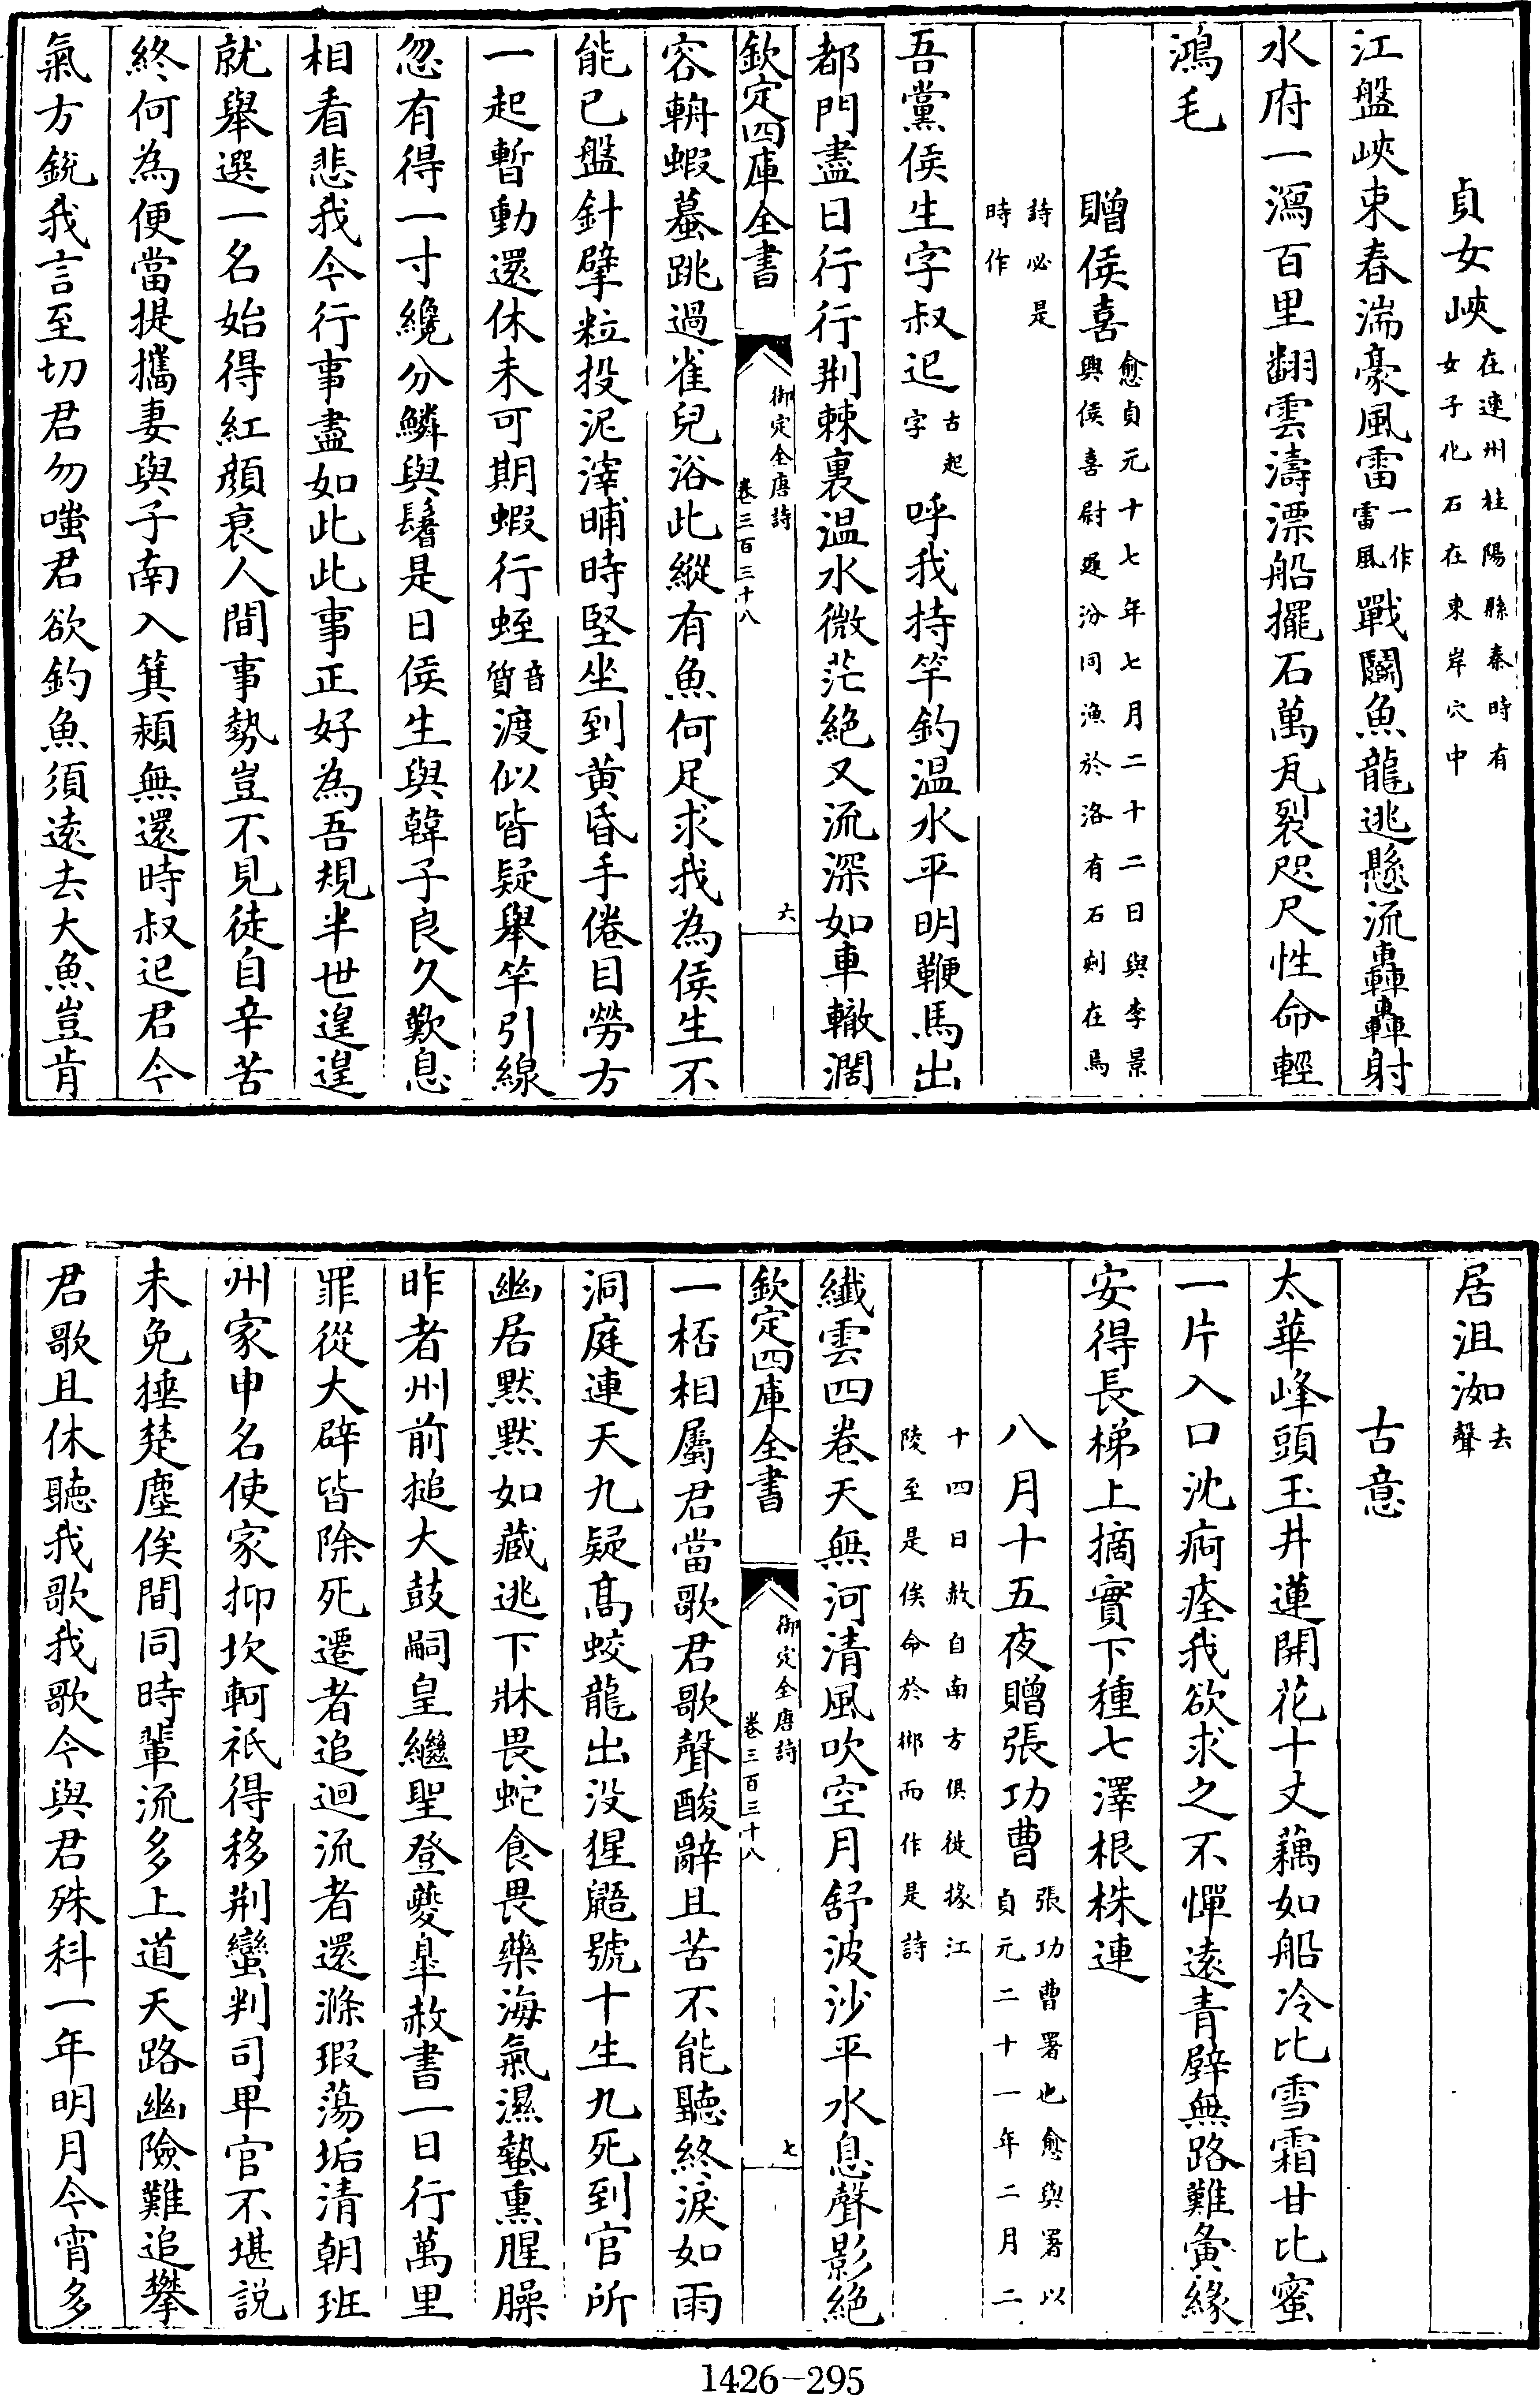 貞女峽在連州桂陽縣秦時有女子化石在東岸穴中
江盤峽束春湍豪風雷一作雷風戰鬭魚龍逃懸流轟轟射
水府一瀉百里翻雲濤漂船擺石萬瓦裂咫尺性命輕
鴻毛
贈侯喜愈貞元十七年七月二十二日與李景興侯喜尉遲汾同漁於洛有石刻在焉
詩必是時作
吾黨侯生字叔𨑖古起字呼我持竿釣温水平明鞭馬出
都門盡日行行荆棘裏温水微茫絶又流深如車轍濶
欽定四庫全書
御定全唐詩
卷三百三十八
六
容輈蝦蟇跳過雀兒浴此縱有魚何足求我為侯生不
能已盤針擘粒投泥滓晡時堅坐到黄昏手倦目勞方
一起暫動還休未可期蝦行蛭音質渡似皆疑舉竿引線
忽有得一寸纔分鱗與鬐是日侯生與韓子良久歎息
相看悲我今行事盡如此此事正好為吾規半世遑遑
就舉選一名始得紅顔衰人間事勢豈不見徒自辛苦
終何為便當提攜妻與子南入箕潁無還時叔𨑖君今
氣方鋭我言至切君勿嗤君欲釣魚須遠去大魚豈肯
居沮洳去聲
古意
太華峰頭玉井蓮開花十丈藕如船冷比雪霜甘比蜜
一片入口沈痾痊我欲求之不憚遠青壁無路難夤緣
安得長梯上摘實下種七澤根株連
八月十五夜贈張功曹張功曹署也愈與署以貞元二十一年二月二
十四日赦自南方俱徙掾江陵至是俟命於郴而作是詩
纖雲四卷天無河清風吹空月舒波沙平水息聲影絶
欽定四庫全書
御定全唐詩
卷三百三十八
七
一桮相屬君當歌君歌聲酸辭且苦不能聽終淚如雨
洞庭連天九疑髙蛟龍出没猩鼯號十生九死到官所
幽居黙黙如藏逃下牀畏蛇食畏藥海氣濕蟄熏腥臊
昨者州前搥大鼓嗣皇繼聖登夔臯赦書一日行萬里
罪從大辟皆除死遷者追迴流者還滌瑕蕩垢清朝班
州家申名使家抑坎軻祇得移荆蠻判司卑官不堪説
未免捶楚塵俟間同時輩流多上道天路幽險難追攀
君歌且休聽我歌我歌今與君殊科一年明月今宵多
1426-295